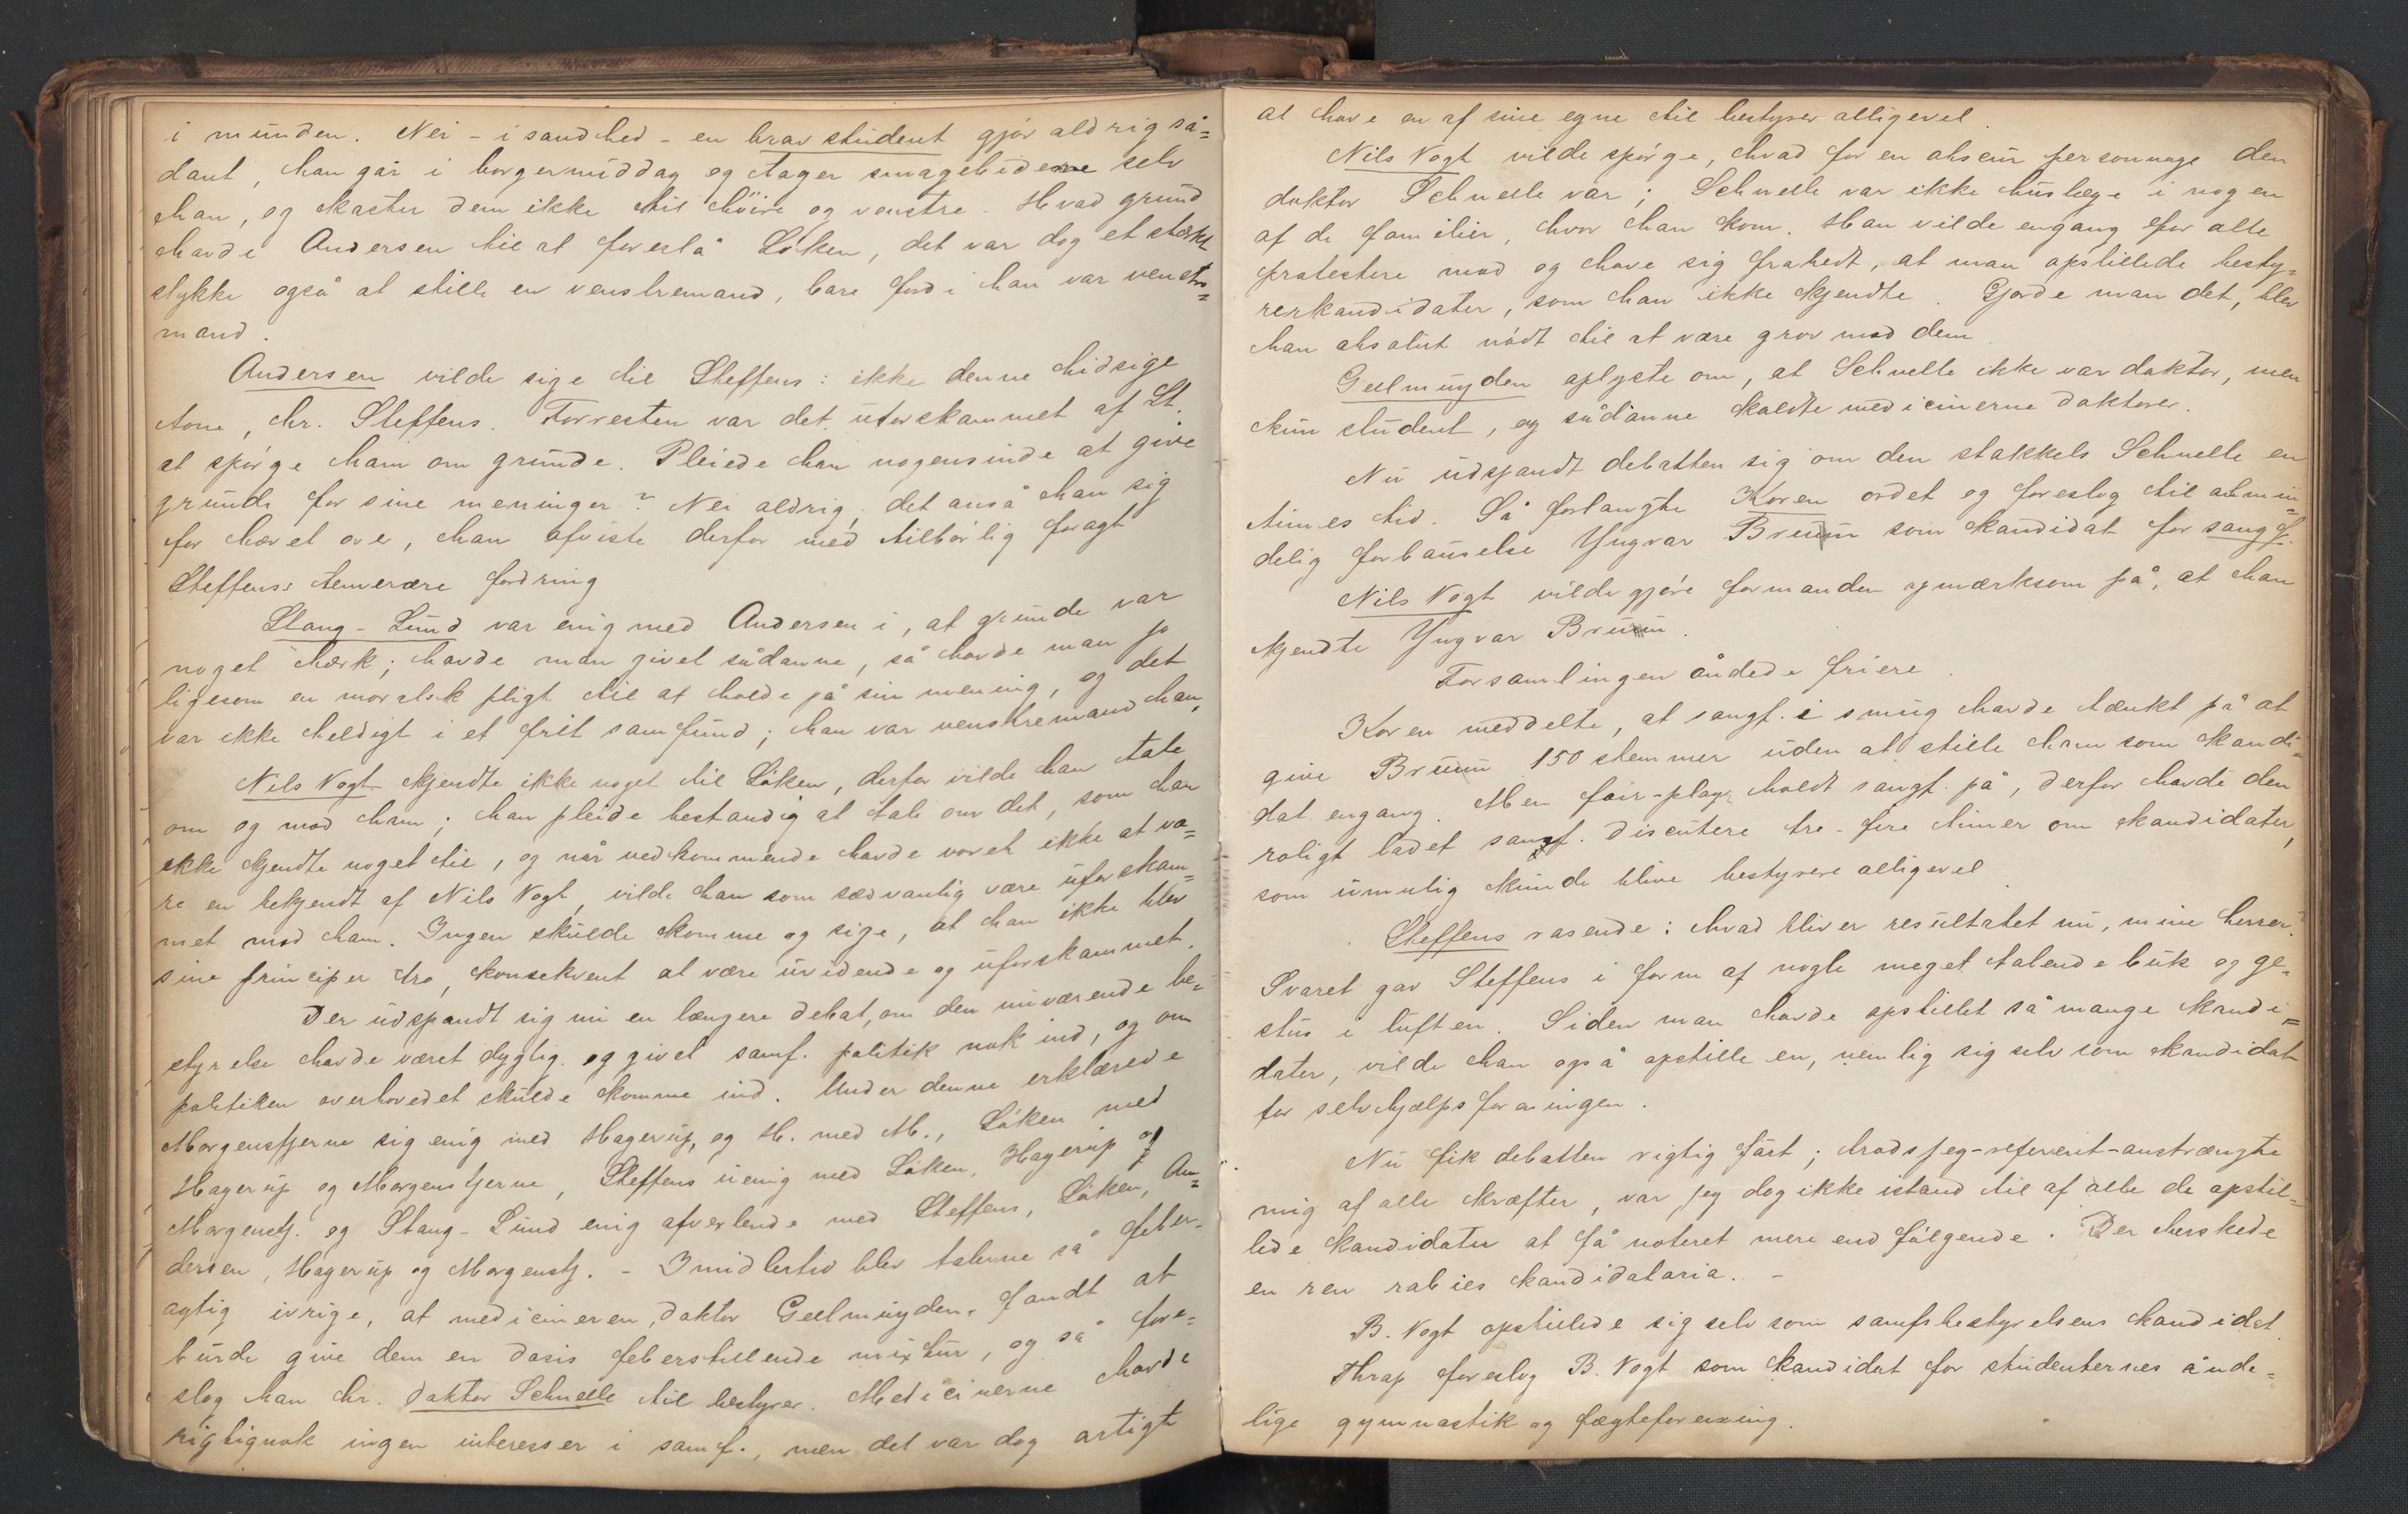 i munden. Nei - i sandhed - en brav student gjør aldrig så=
dant, han går i borgermiddag og tager smagebidene selv
han, og kaster dem ikke til høire og venstre. Hvad grund
havde Andersen til at foreslå Løken, det var dog et stærkt
stykke også at stille en venstremand, bare fordi han var venstre=
mand.
Andersen vilde sige til Steffens: ikke denne hidsige
tone, hr. Steffens. Forresten var det uforskammet af St.
at spørge ham om grunde. Pleiede han nogensinde at give
grunde for sine meninger? Nei aldrig, det anså han sig
for hævet over, han afviste derfor med tilbørlig foragt
Steffens's temerære fordring
Stang-Lund var enig med Andersen i, at grunde var
noget herk; havde man givet sådanne, så havde man jo
ligesom en moralsk pligt til at holde på sin mening, og det
var ikke heldigt i et frit samfund; han var venstremand han.
Nils Vogt kjendte ikke noget til Løken, derfor vilde han tale
om og mod ham; han pleide bestandig at tale om det, som han
ikke kjendte noget til, og når vedkommende havde vovet ikke at væ=
re en bekjendt af Nils Vogt, vilde han som sædvanlig være uforskam=
met mod ham. Ingen skulde komme og sige, at han ikke blev
sine principer tro, konsekvent at være uvidende og uforskammet.
Der udspandt sig nu en længere debat, om den nuværende be=
styrelse havde været dygtig og givet samf. politik nok ind, og om
politiken overhovedet skulde komme ind. Under denne erklærede
Morgenstjerne sig enig med Hagerup, og H. med M., Løken med
Hagerup og Morgenstjerne, Steffens uenig med Løken, Hagerup og
Morgenstj. og Stang-Lund enig afvexlende med Steffens, Løken, An=
dersen, Hagerup og Morgenstj. - Imidlertid blev talerne så feber-
agtig ivrige, at medicineren, doktor Geelmuyden, fandt at
burde give dem en dosis feberstillende mixtur, og så fore=
slog han hr. doktor Schnelle til bestyrer. Medicinerne havde
rigtignok ingen interesser i samf., men det var dog artigt
at have en af sine egne til bestyrer alligevel.
Nils Vogt vilde spørge, hvad for en obscur personnage den
doktor Schnelle var; Schnelle var ikke huslæge i nogen
af de familier, hvor han kom. Han vilde engang for alle
protestere mod og have sig frabedt, at man opstillede besty=
rerkandidater, som han ikke kjendte. Gjorde man det, blev
han absolut nødt til at være grov mod dem
Geelmuyden oplyste om, at Schnelle ikke var doktor, men
kun student, og sådanne kaldte medicinerne doktorer.
Nu udspandt debatten sig om den stakkels Schnelle en
times tid. Så forlangte Koren ordet og foreslog til almin=
delig forbauselse Yngvar Bruun som kandidat for sangf.
Nils Vogt vilde gjøre formanden opmærksom på, at han
kjendte Yngvar Bruun.
Forsamlingen åndede friere.
Koren meddelte, at sangf. i smug havde tænkt på at
give Bruun 150 stemmer uden at stille ham som kandi=
dat engang. Men fair-play holdt sangf. på, derfor havde den
roligt ladet samf. discutere tre-fire timer om kandidater,
som umulig kunde blive bestyrere alligevel.
Steffens rasende: hvad bliver resultatet nu, mine herrer?
Svaret gav Steffens i form af nogle meget talende buk og ge=
stus i luften. Siden man havde opstillet så mange kandi=
dater, vilde han også opstille en, nemlig sig selv som kandidat
for selvhjælpsforeningen.
Nu fik debatten rigtig fart; trods jeg-referent-anstrængte
mig af alle kræfter, var jeg dog ikke istand til af alle de opstil=
lede kandidater at få noteret mere end følgende. Der herskede
en ren rabies kandidataria. -
B. Vogt opstillede sig selv som samfsbestyrelsens kandidat.
Thrap foreslog B. Vogt som kandidat for studenternes ånde=
lige gymnastik og fægteforening.